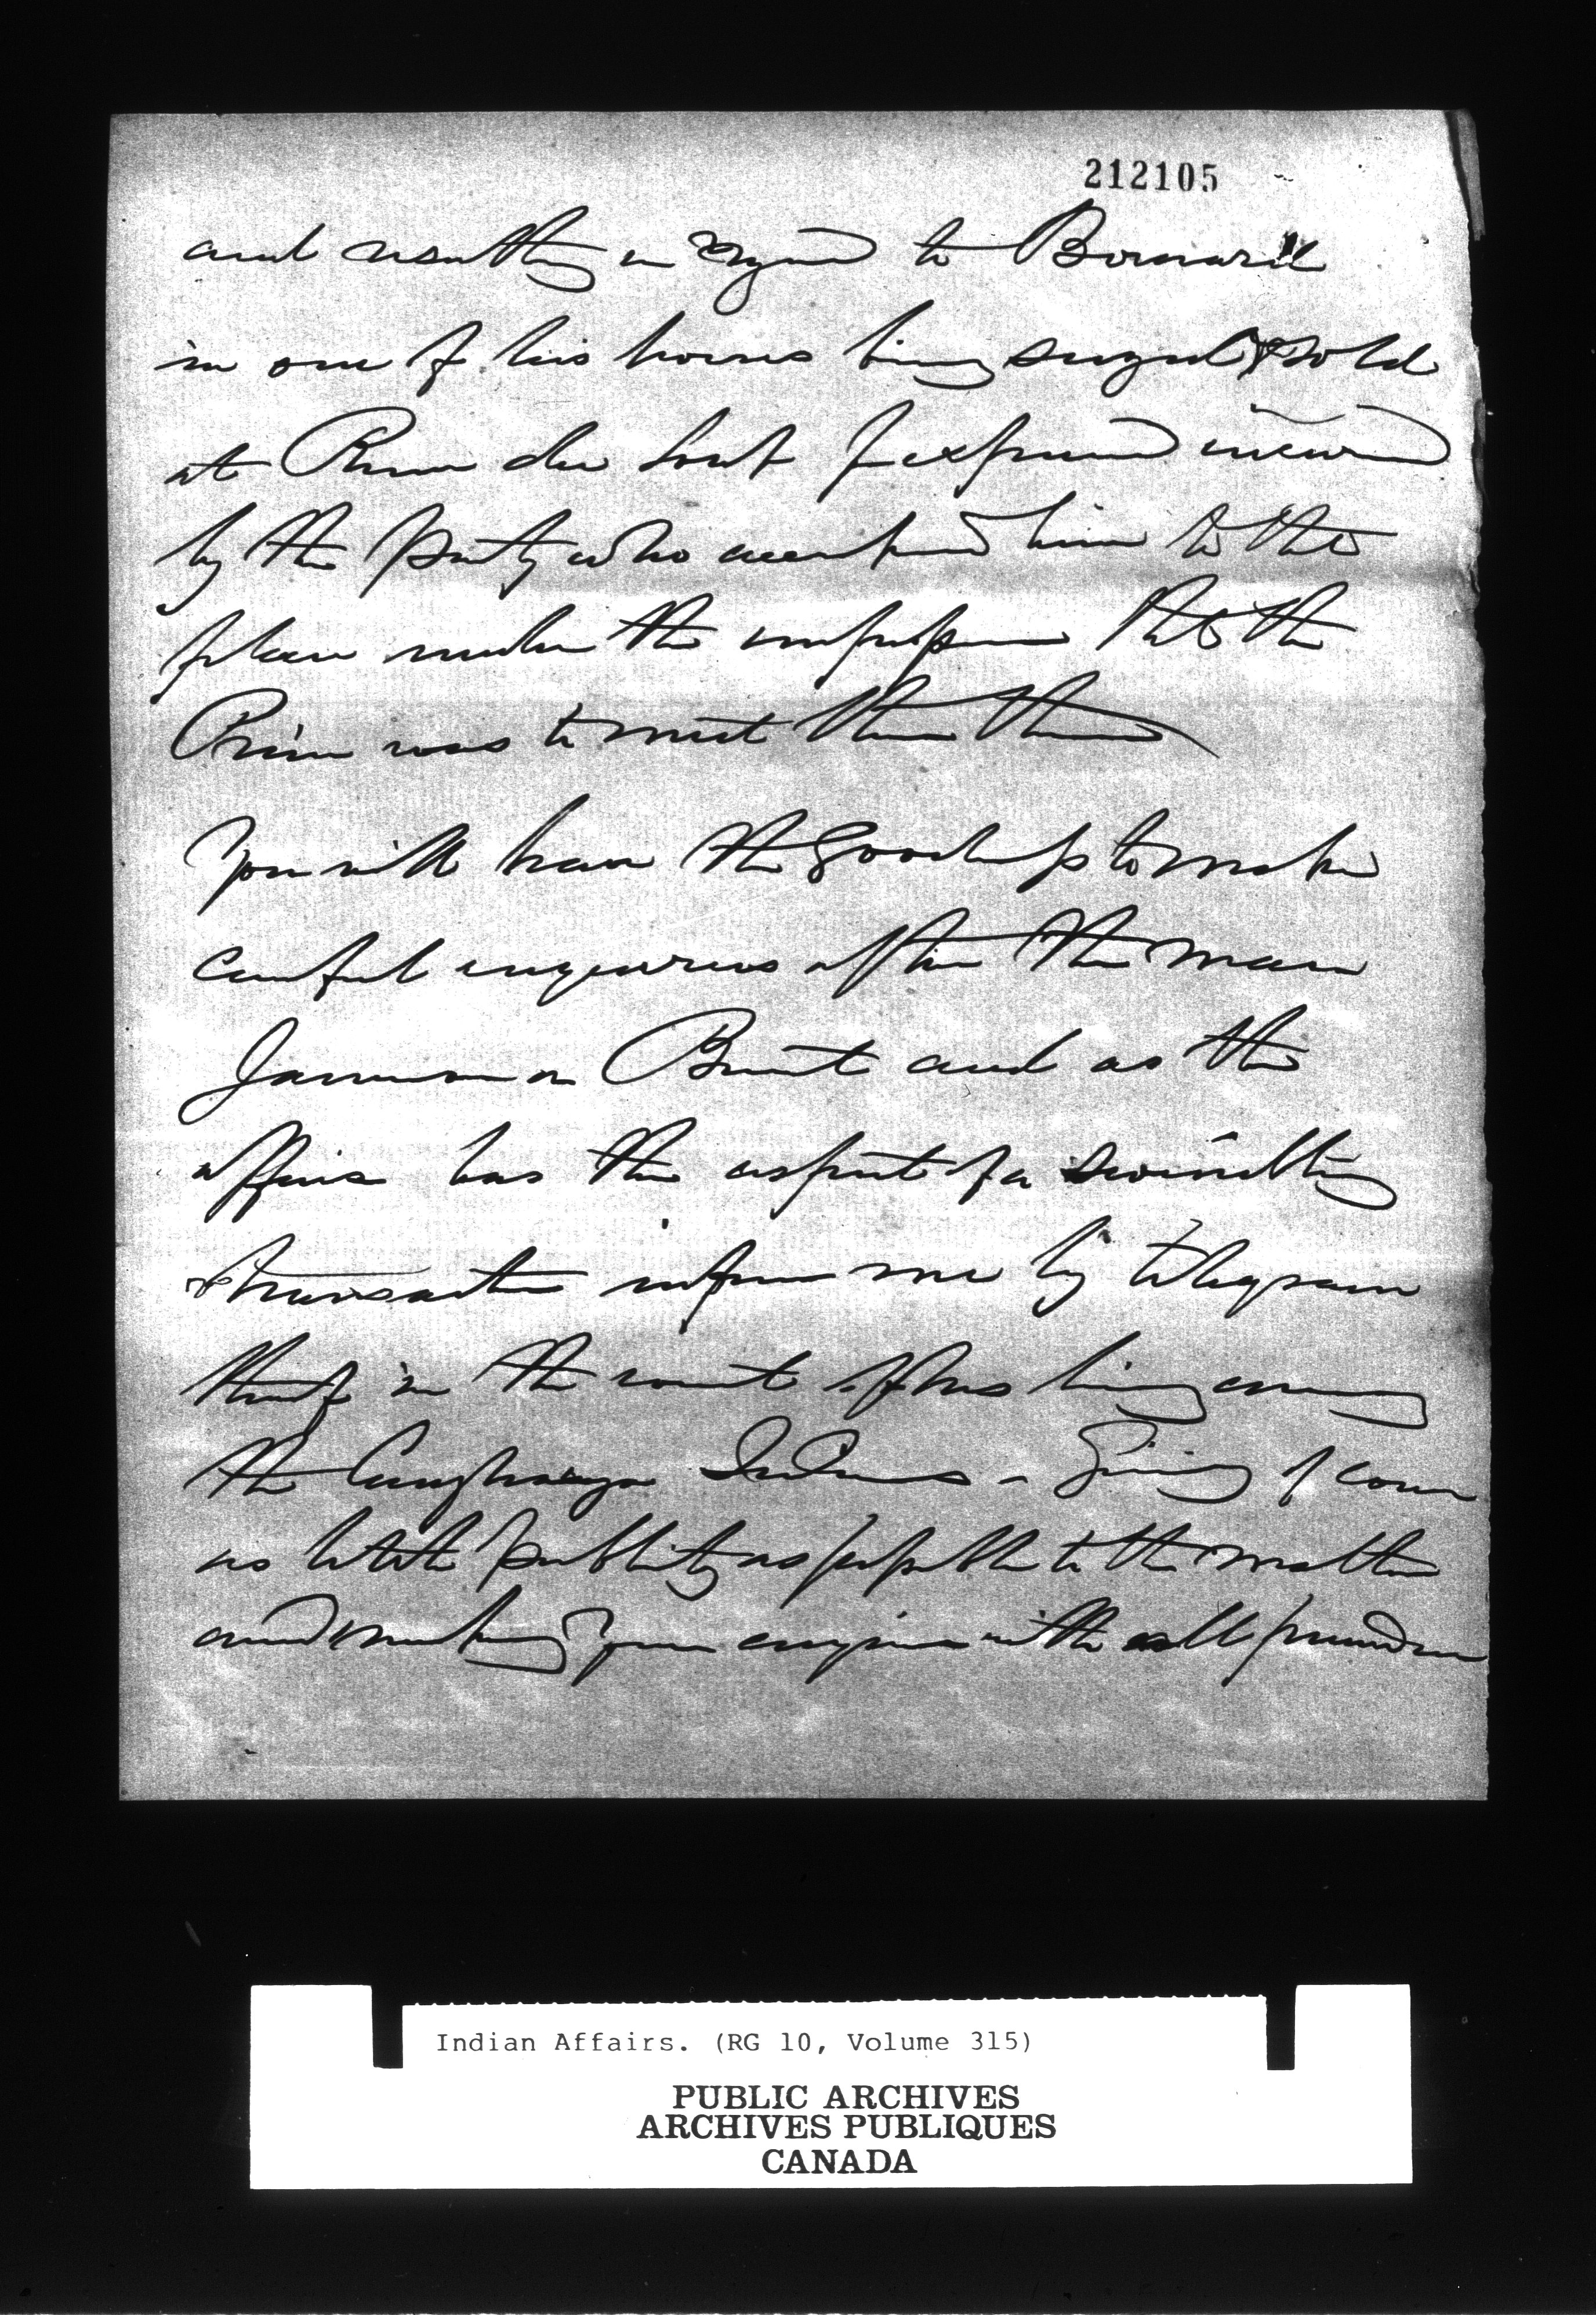 212105
and resulting in regard to
in one of his horses being seized & sold
at Riviere du Loup for expenses incurred
by the Party who accompanied him to that
place under the impression that the
Prince was to meet them there
You will have the goodness to make
careful inquiries after the man
Jamieson or Brant and as the
affair has the aspect of a swindling
transaction inform me by telegram
in the event of his being among
the Caughnawaga Indians - Giving of course
as little publicity as possible to the matter
and making your enquiries with all prudence
Indian Affairs. (RG 10, Volume 315)
PUBLIC ARCHIVES
ARCHIVES PUBLIQUES
CANADA